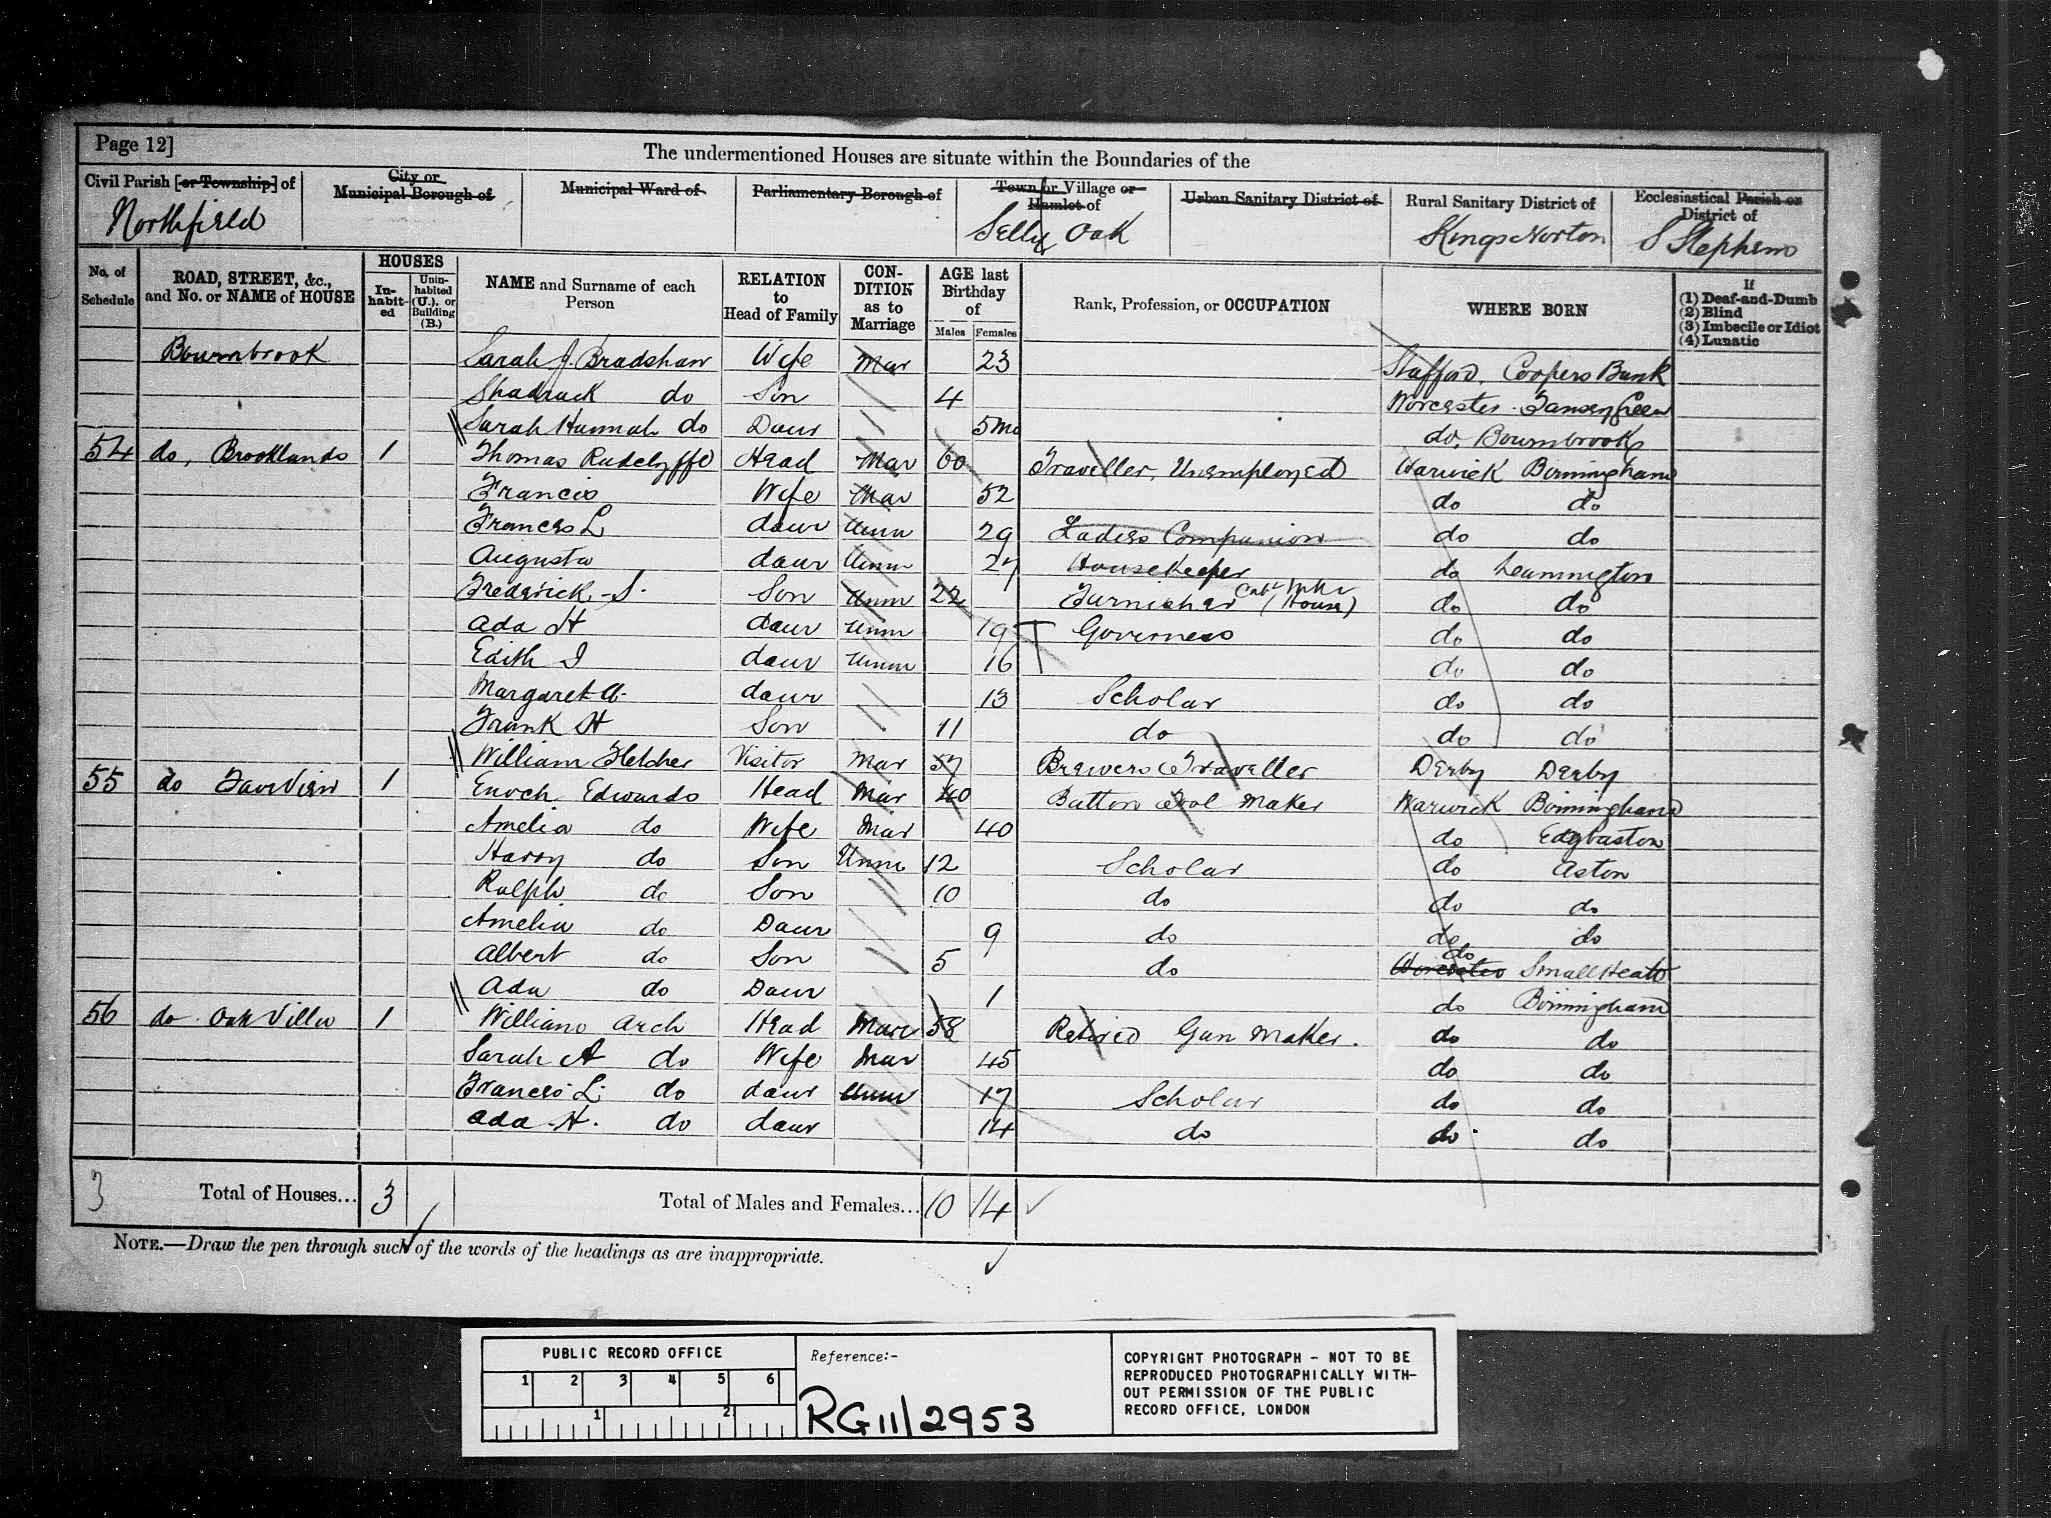 Page 12]
The undermentioned Houses are situate within the Boundaries of the
Civil Parish [or Township] of Northfield
City or Municipal Borough of
Municipal Ward of
Parliamentary Borough of
Town or Village or Hamlet of Selly Oak
Urban Sanitary District of
Rural Sanitary District of Kings Norton
Ecclesiastical Parish or District of S Stephens
No. of Schedule
ROAD, STREET, &c., and No. or NAME of HOUSE
HOUSES
In-habit-ed
Unin-habited (U.), or Building (B.)
NAME and Surname of each Person
RELATION to Head of Family
CON-DITION as to Marriage
AGE last Birthday of
Males Females
Rank, Profession, or OCCUPATION
WHERE BORN
If
(1) Deaf-and-Dumb
(2) Blind
(3) Imbecile or Idiot
(4) Lunatic
Bournbrook Sarah J. Bradshaw Wife Mar 23 Stafford, Coopers Bank
Shadrack do Son 4 Worcester Tansey Green
Sarah Hannah do Daur 5mo do, Bournbrook
54 do, Brooklands 1 Thomas Radclyffe Head Mar 60 Traveller, Unemployed Warwick Birmingham
Francis Wife Mar 52 do do
Frances L daur Unm 29 Ladies Companion do do
Augusta daur Unm 27 Housekeeper do Leamington
Frederick S. Son Unm 22 Furnisher (House) do do
Ada H daur Unm 19 Governess do do
Edith I daur Unm 16 do do
Margaret A. daur 13 Scholar do do
Frank H Son 11 do do do
William Fletcher Visitor Mar 57 Brewers Traveller Derby Derby
55 do Fair View 1 Enoch Edwards Head Mar 40 Button Tool Maker Warwick Birmingham
Amelia do Wife Mar 40 do Edgbaston
Harry do Son Unm 12 Scholar do Aston
Ralph do Son 10 do do do
Amelia do Daur 9 do do do
Albert do Son 5 do Worcester do Small Heath
Ada do Daur 1 do Birmingham
56 do Oak Villa 1 William Arch Head Mar 58 Retired Gun Maker. do do
Sarah A do Wife Mar 45 do do
Frances L. do daur Unm 17 Scholar do do
Ada H. do daur 14 do do do
3 Total of Houses... 3 Total of Males and Females... 10 14
NOTE.—Draw the pen through such of the words of the headings as are inappropriate.
PUBLIC RECORD OFFICE
1 2 3 4 5 6
1 2
Reference:-
RG11/2953
COPYRIGHT PHOTOGRAPH - NOT TO BE
REPRODUCED PHOTOGRAPHICALLY WITH-
OUT PERMISSION OF THE PUBLIC
RECORD OFFICE, LONDON